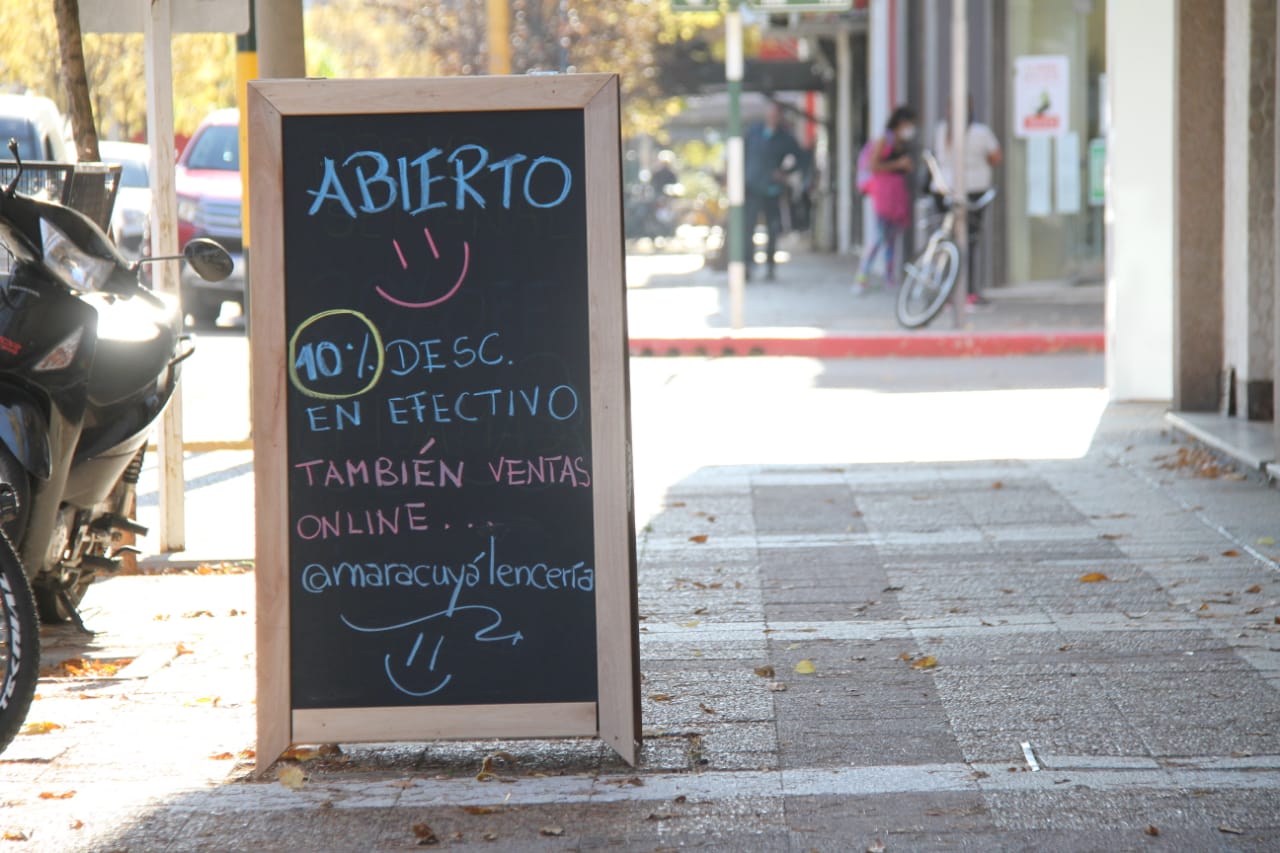 ABIERTO
10% DESC.
EN EFECTIVO
TAMBIÉN VENTAS
ONLINE...
@maracuyálencería